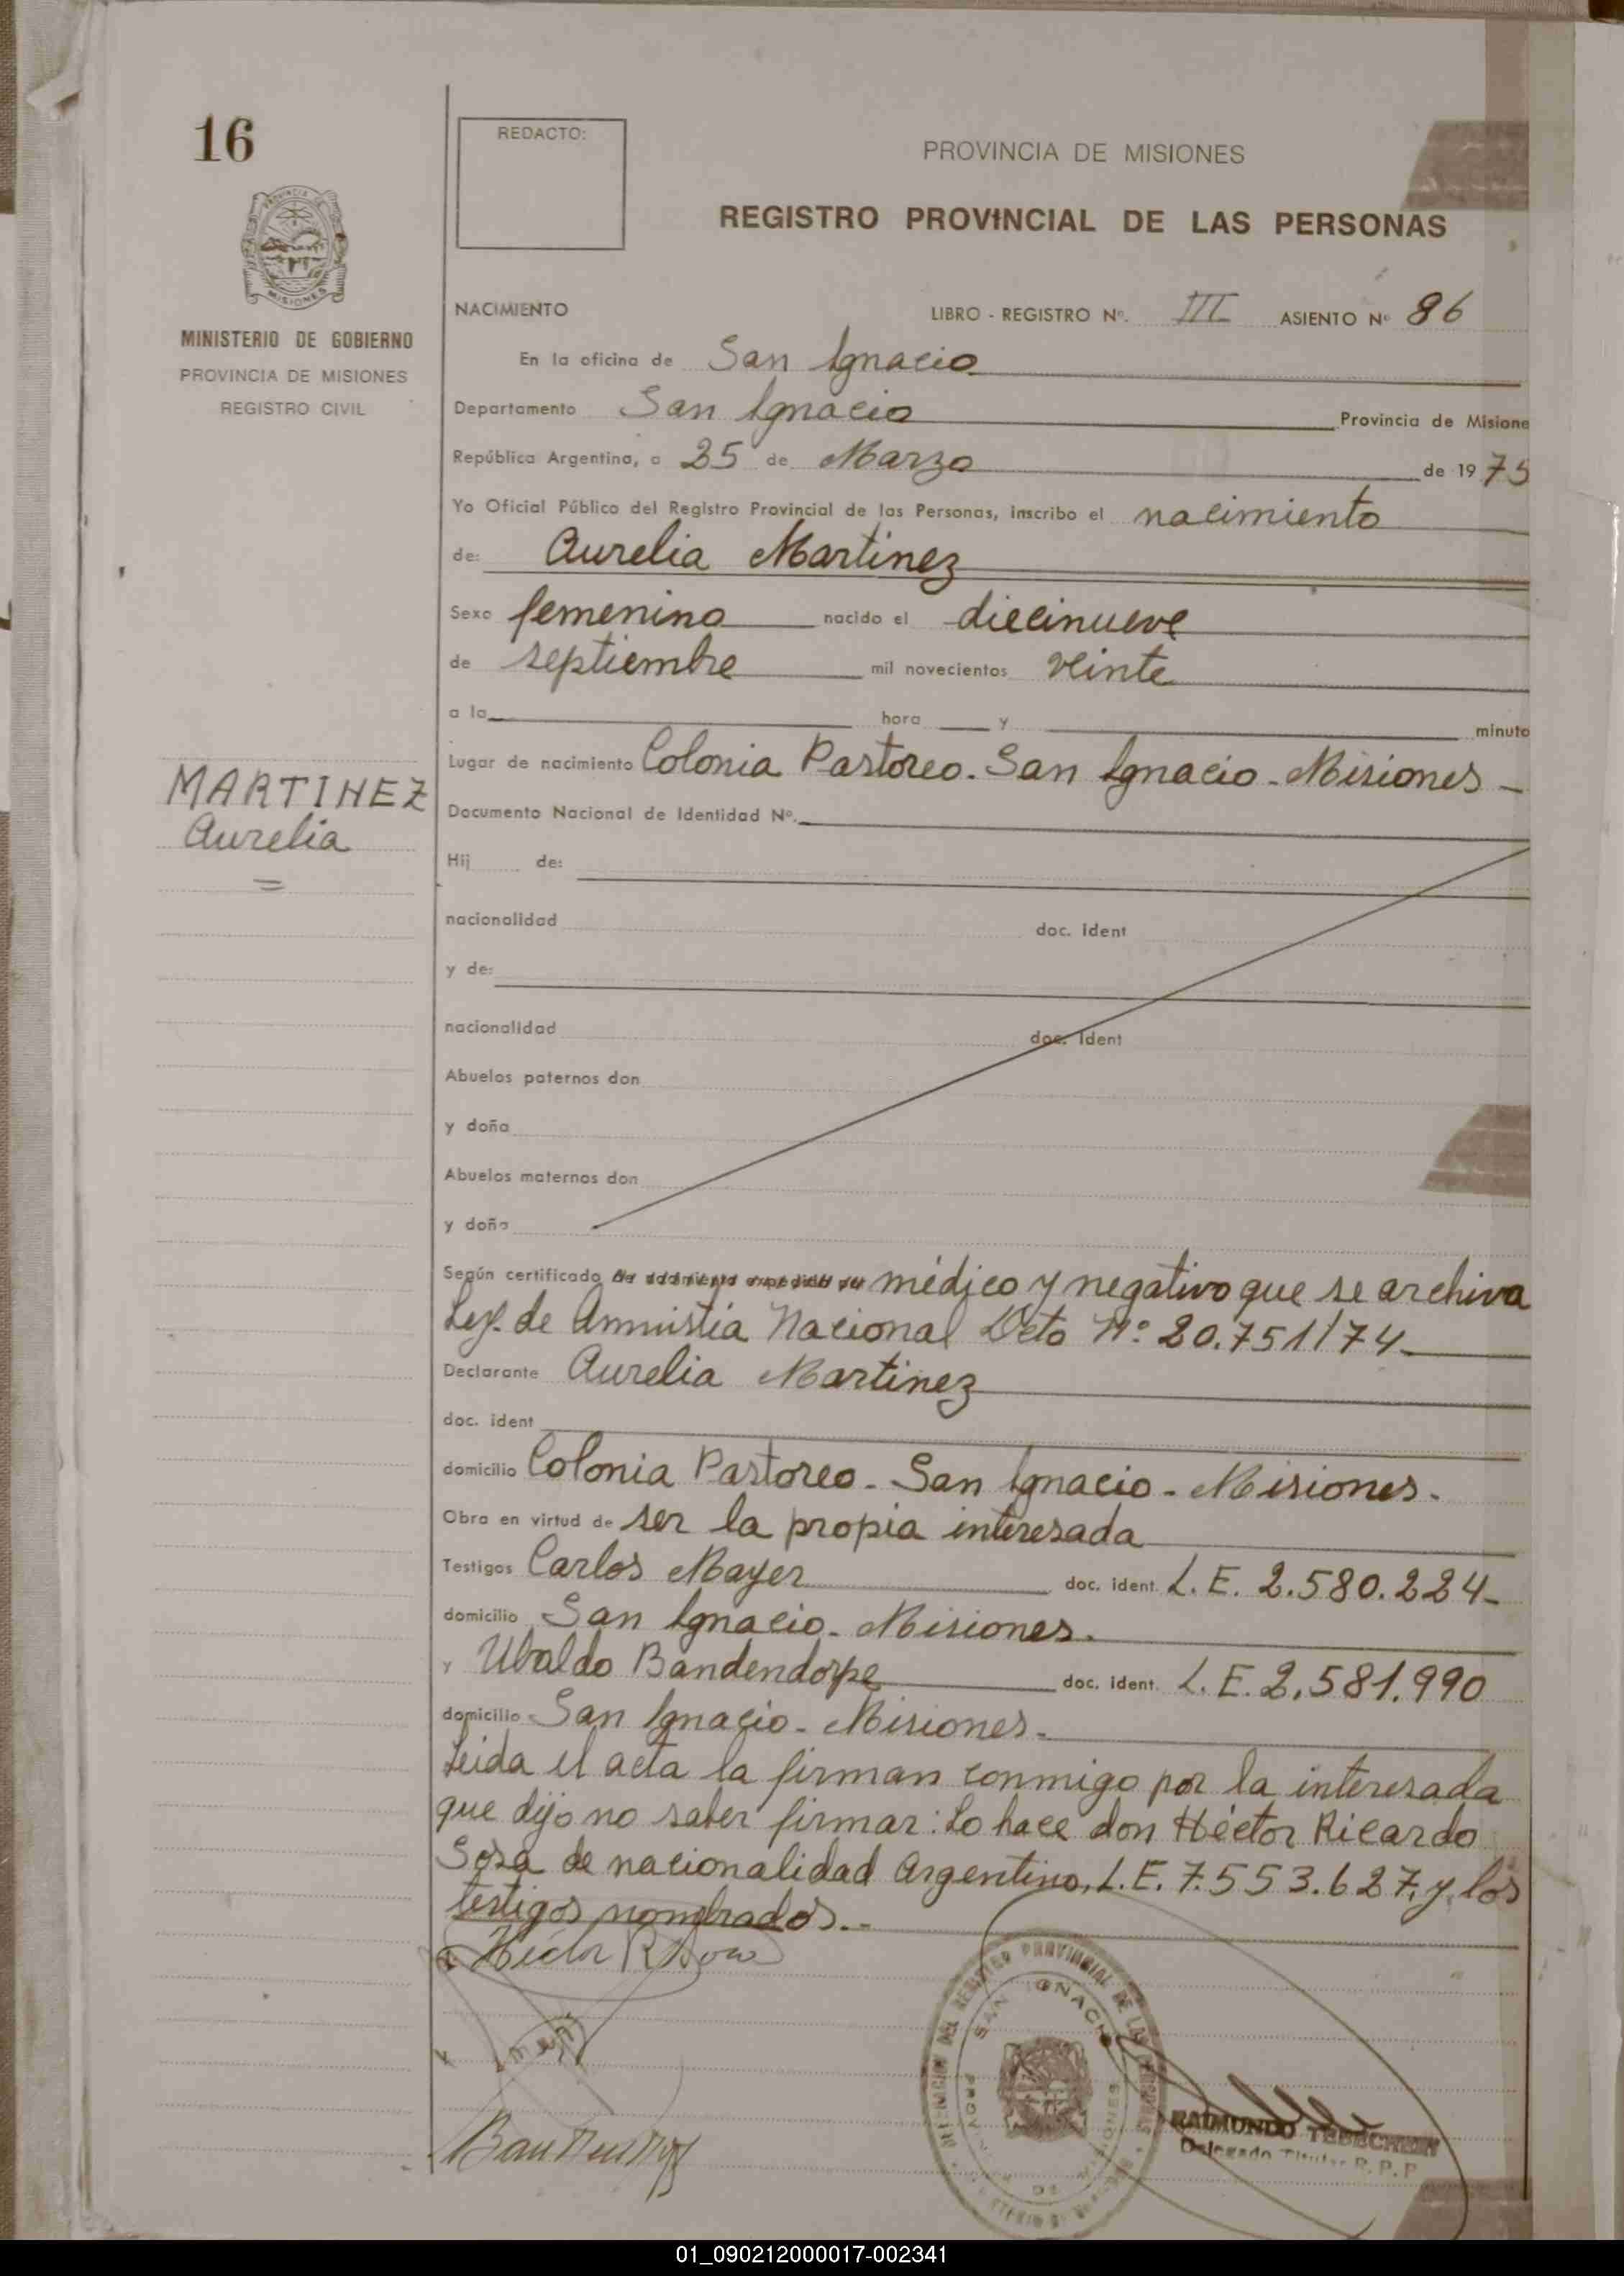 16
REDACTO:
PROVINCIA DE MISIONES
REGISTRO PROVINCIAL DE LAS PERSONAS
MISIONES
MINISTERIO DE GOBIERNO
PROVINCIA DE MISIONES
REGISTRO CIVIL
NACIMIENTO LIBRO - REGISTRO Nº. III ASIENTO Nº 86
En la oficina de San Ignacio
Departamento San Ignacio Provincia de Misione
República Argentina, a 25 de Marzo de 1975
Yo Oficial Público del Registro Provincial de las Personas, inscribo el nacimiento
de: Aurelia Martinez
Sexo femenino nacido el diecinueve
de septiembre mil novecientos veinte
a la hora y minuto
Lugar de nacimiento Colonia Pastoreo. San Ignacio - Misiones -
MARTINEZ
Aurelia
=
Documento Nacional de Identidad Nº.
Hij de:
nacionalidad doc. ident
y de:
nacionalidad doc. ident
Abuelos paternos don
y doña
Abuelos maternos don
y doña
Según certificado médico y negativo que se archiva
Ley. de Amnistia Nacional Dcto Nº 20.751/74.
Declarante Aurelia Martinez
doc. ident
domicilio Colonia Pastoreo - San Ignacio - Misiones.
Obra en virtud de ser la propia interesada
Testigos Carlos Mayer doc. ident. L.E. 2.580.224-
domicilio San Ignacio - Misiones.
y Ubaldo Bandendorpe doc. ident. L.E. 2.581.990
domicilio San Ignacio - Misiones.
Leida el acta la firman conmigo por la interesada
que dijo no saber firmar: Lo hace don Héctor Ricardo
Sosa de nacionalidad Argentino, L.E. 7.553.627, y los
testigos nombrados.-
Héctor R Sosa
SAN IGNACIO
RAIMUNDO
Delegado Titular R.P.P
01_090212000017-002341